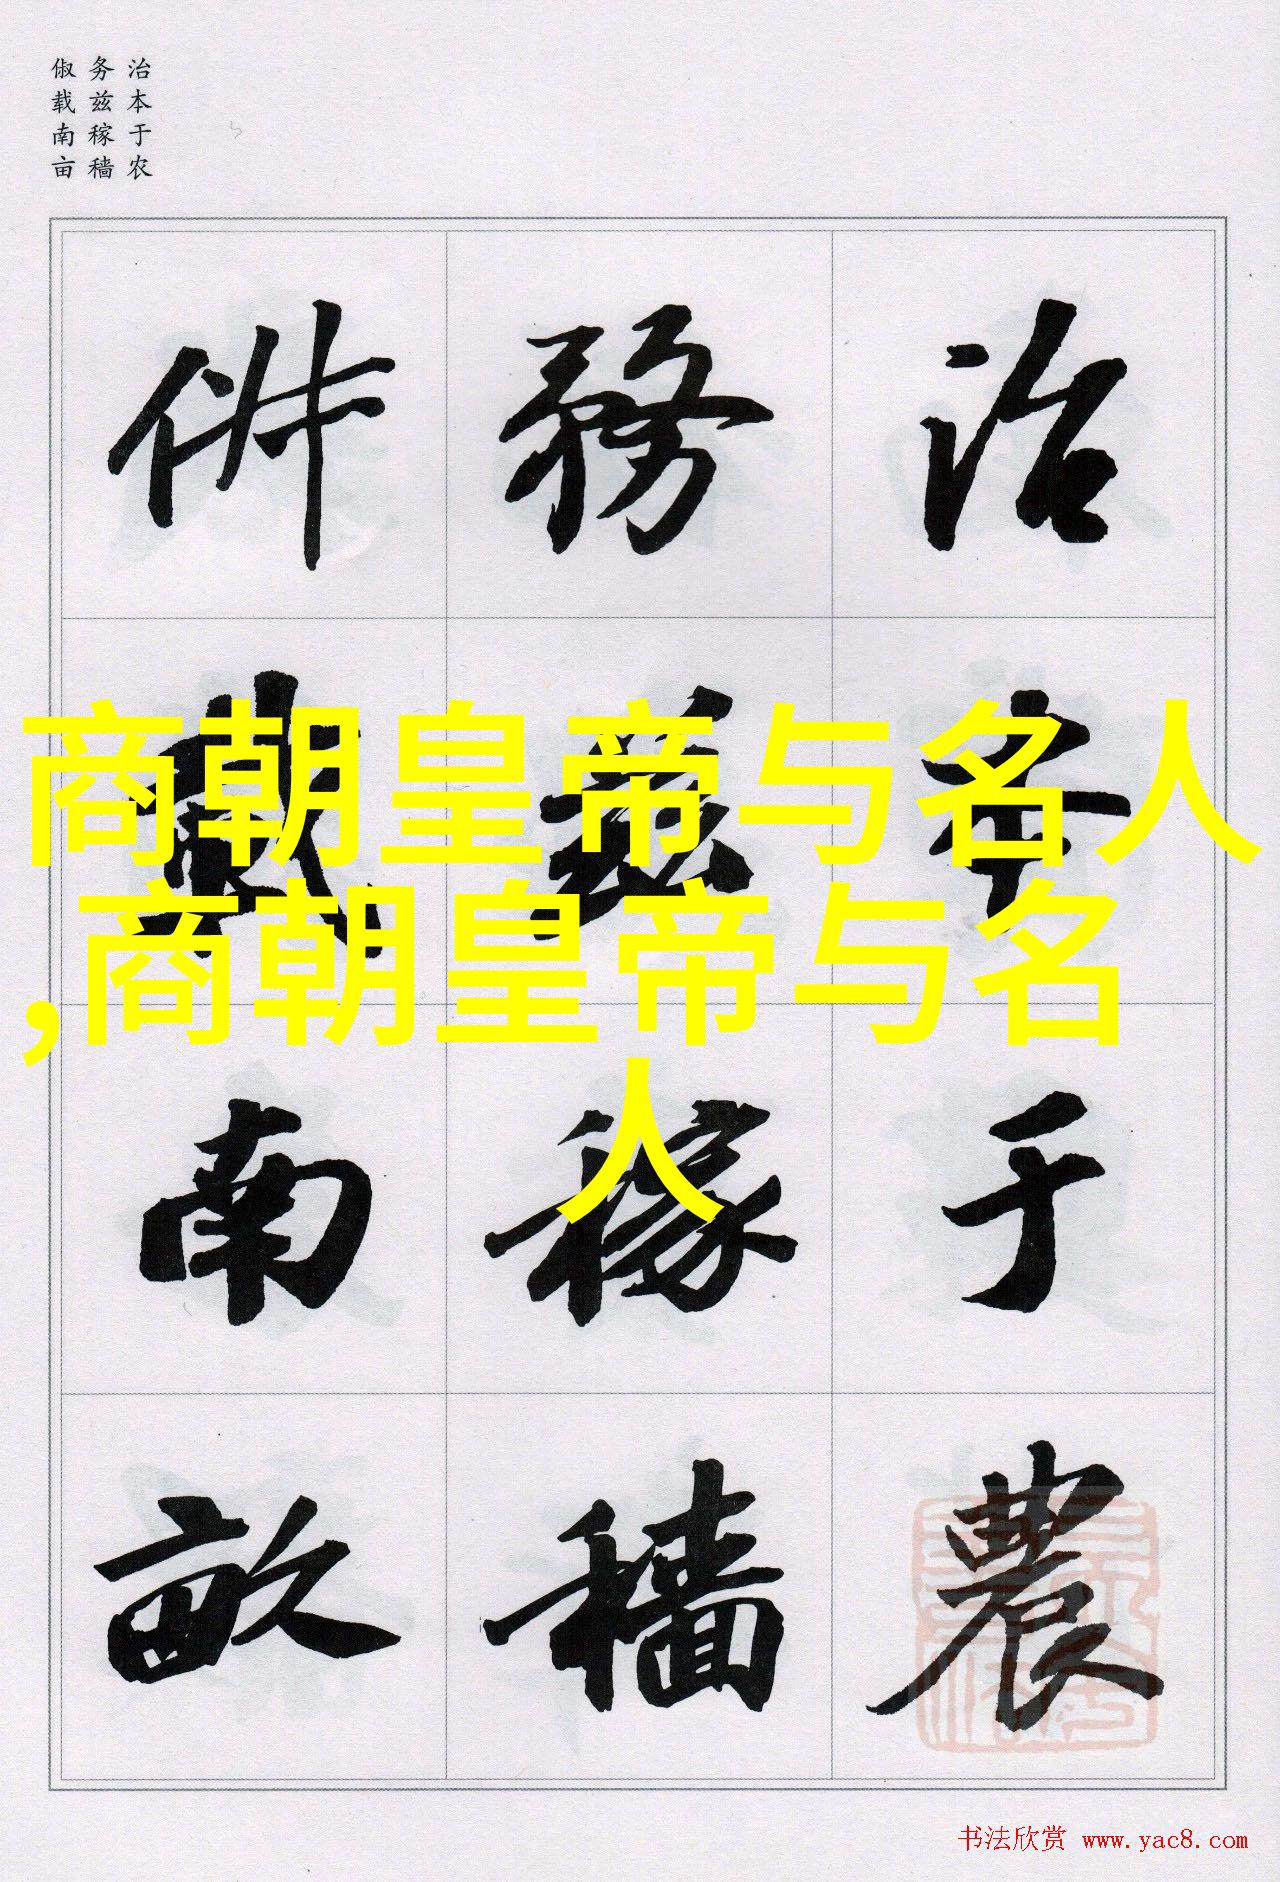 治本于农
务兹稼穑
俶载南亩
治本于農
務兹稼穡
俶載南畝
商朝皇帝与名人
,商朝皇帝与名
人
书法欣赏 www.yac8.com